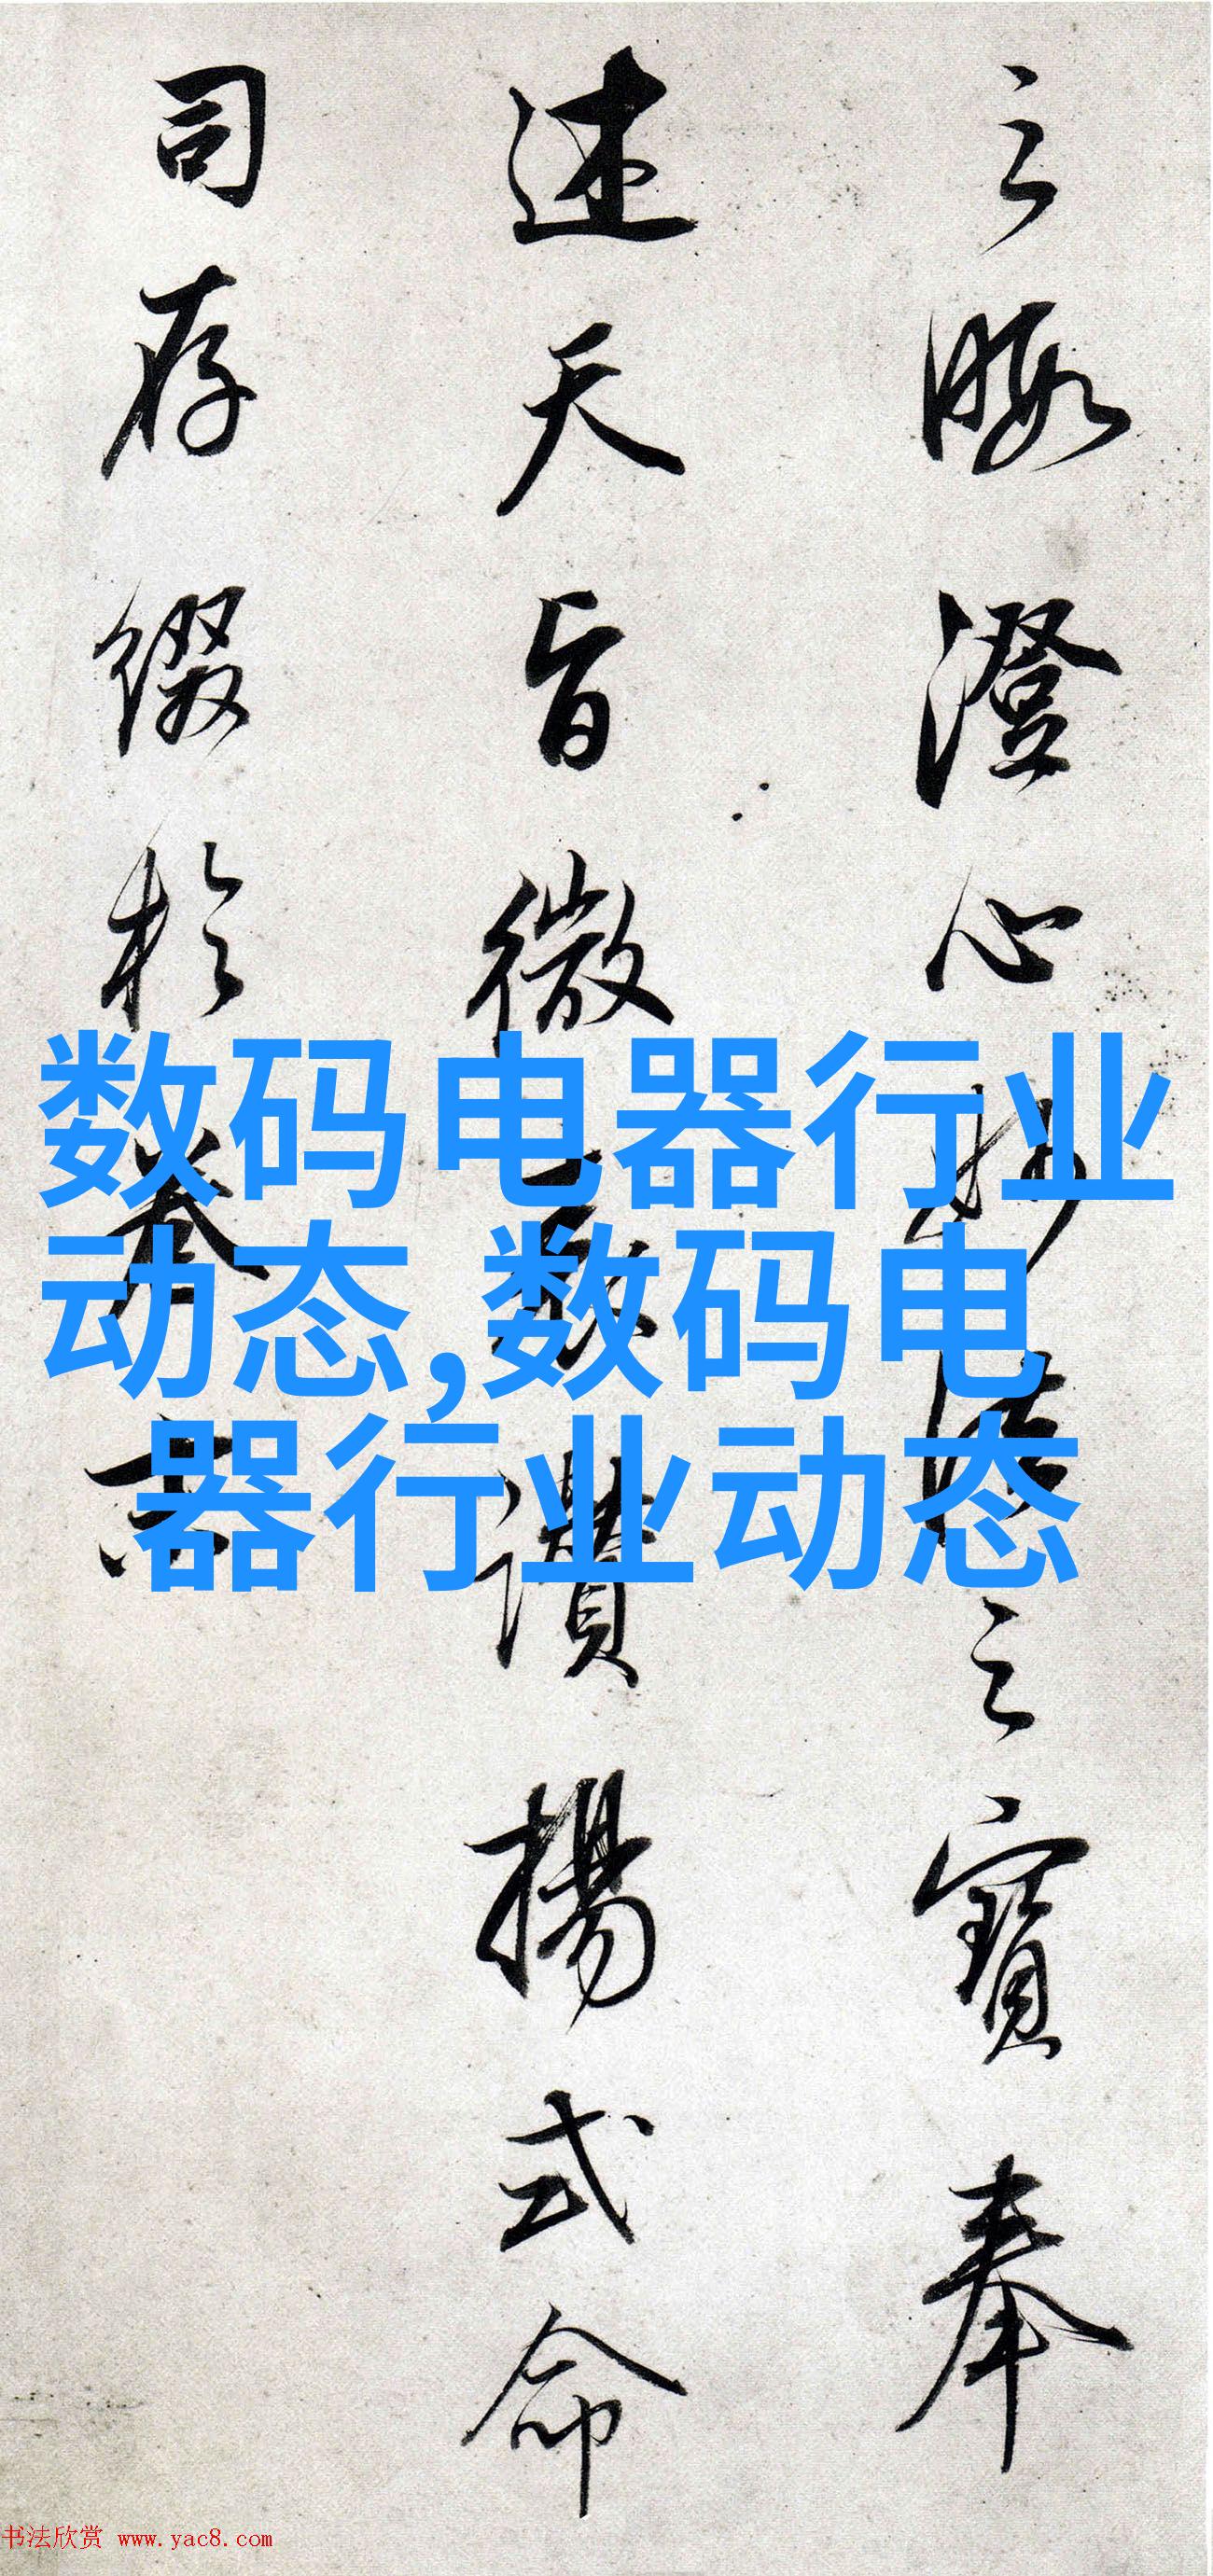 之暇澄心
之寶奉
述天旨微
讚揚式命
司存綴於卷末
数码电器行业
动态,数码电
器行业动态
书法欣赏 www.yac8.com